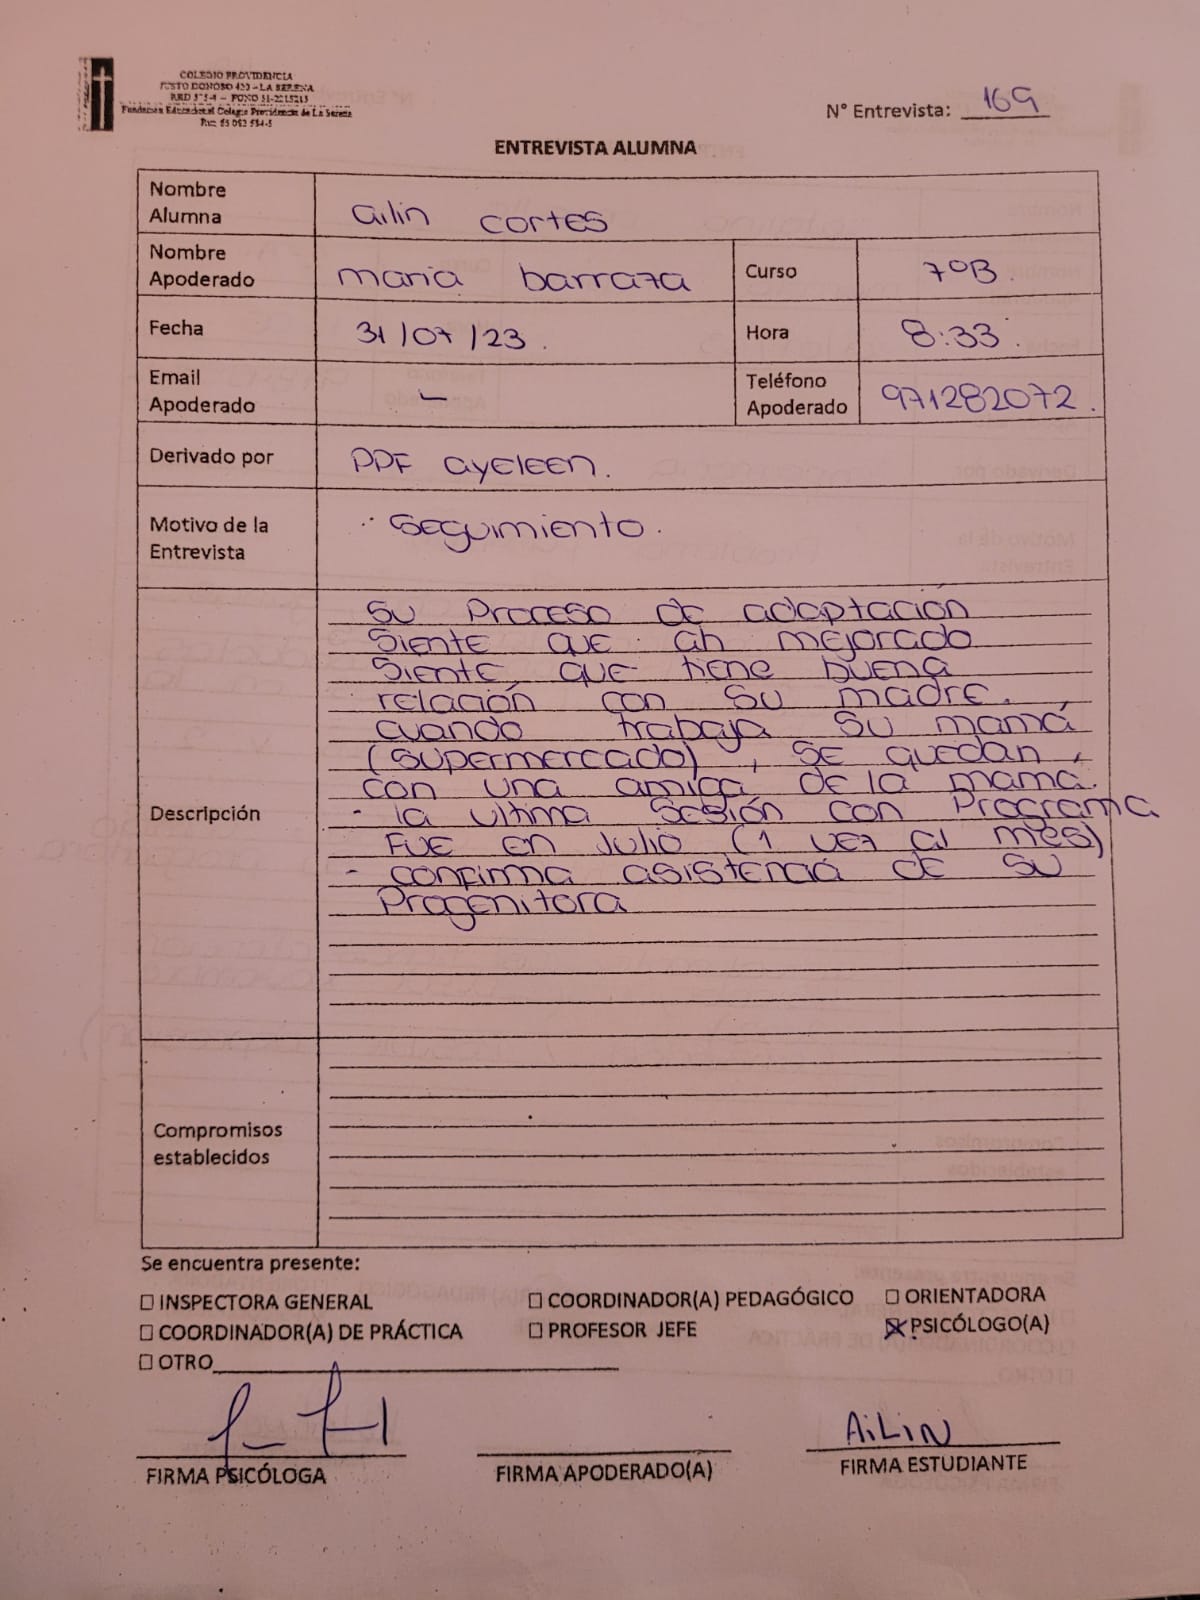 COLEGIO PROVIDENCIA
JUSTO DONOSO 420 - LA SERENA
Fundación Educacional Colegio Providencia de La Serena
N° Entrevista: 169
ENTREVISTA ALUMNA
Nombre Alumna ailin cortes
Nombre Apoderado maria barraza Curso 7°B.
Fecha 31/07/23. Hora 8:33.
Email Apoderado - Teléfono Apoderado 971282072.
Derivado por PPF ayeleen.
Motivo de la Entrevista Seguimiento.
Descripción
Su Proceso de adaptación
Siente que ah mejorado
Siente que tiene buena
relación con su madre.
cuando trabaja su mamá
(supermercado), se quedan
con una amiga de la mamá.
- la ultima Sesión con Programa
Fue en Julio (1 vez al mes)
- confirma asistencia de su
Progenitora
Compromisos establecidos
Se encuentra presente:
☐ INSPECTORA GENERAL ☐ COORDINADOR(A) PEDAGÓGICO ☐ ORIENTADORA
☐ COORDINADOR(A) DE PRÁCTICA ☐ PROFESOR JEFE ☒ PSICÓLOGO(A)
☐ OTRO
AiLiN
FIRMA PSICÓLOGA FIRMA APODERADO(A) FIRMA ESTUDIANTE